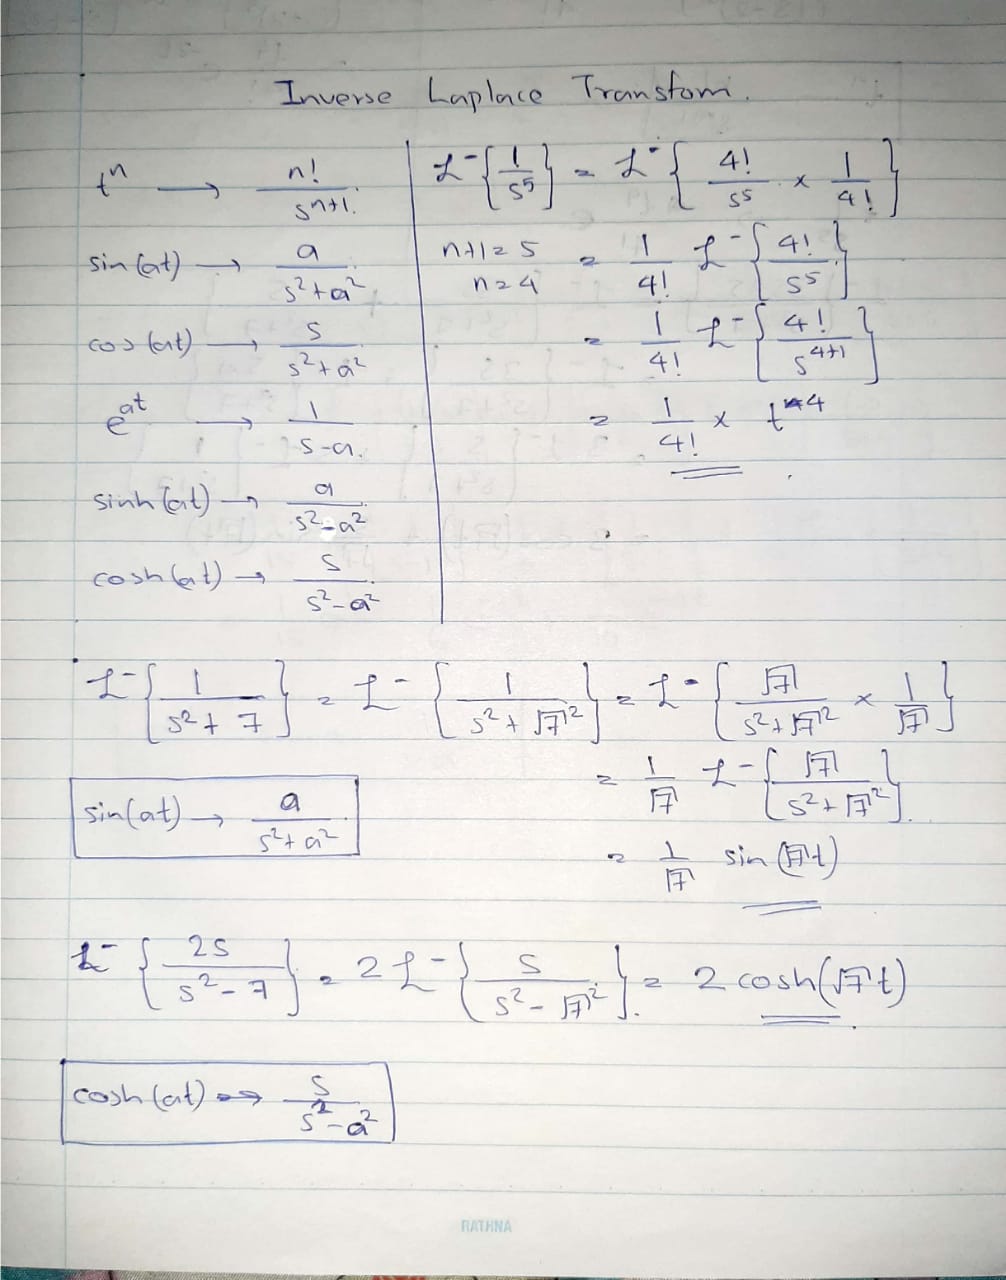 Inverse Laplace Transform.
t^n → n!/s^{n+1}.
sin(at) → a/(s²+a²)
cos(at) → s/(s²+a²)
e^{at} → 1/(s-a).
sinh(at) → a/(s²-a²)
cosh(at) → s/(s²-a²)
L⁻{1/s⁵} = L⁻{4!/s⁵ × 1/4!}
n+1=5
n=4
= 1/4! L⁻{4!/s⁵}
= 1/4! L⁻{4!/s^{4+1}}
= 1/4! × t⁴
L⁻{1/(s²+7)} = L⁻{1/(s²+√7²)} = L⁻{√7/(s²+√7²) × 1/√7}
= 1/√7 L⁻{√7/(s²+√7²)}.
sin(at) → a/(s²+a²)
= 1/√7 sin(√7t)
L⁻{2s/(s²-7)} = 2L⁻{s/(s²-√7²)}. = 2cosh(√7t).
cosh(at) → s/(s²-a²)
RATHNA